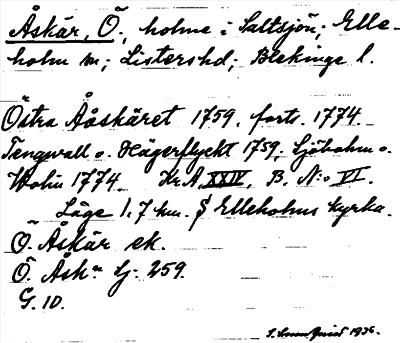 Åskär, Ö., holme i Saltsjön; Elle-
holm sn; Listers hd; Blekinge l.
Östra Ååskäret 1759. forts. 1774.
Tengwall o. Hägerflycht 1759; Sjöbohm o.
Wolin 1774. Kr.A. XXIV. B. N:o VI.
Läge 1.7 km. S Elleholms kyrka.
Ö. Åskär ek.
Ö. Åskr Sj. 259.
G. 10.
1936.